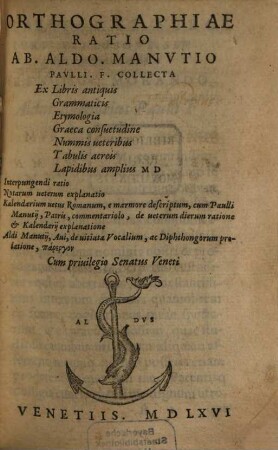 ORTHOGRAPHIAE
RATIO
AB. ALDO. MANVTIO
PAVLLI. F. COLLECTA
Ex Libris antiquis
Grammaticis
Etymologia
Graeca consuetudine
Nummis ueteribus
Tabulis aereis
Lapidibus amplius MD
Interpungendi ratio
Notarum ueterum explanatio
Kalendarium uetus Romanum, e marmore descriptum, cum Paulli
Manutij, Patris, commentariolo, de ueterum dierum ratione
& Kalendarij explanatione
Aldi Manutij, Aui, de uitiata Vocalium, ac Diphthongorum pro-
latione, πάρεργον
Cum priuilegio Senatus Veneti
AL DVS
VENETIIS. MDLXVI
Bayerische
Staatsbibliothek